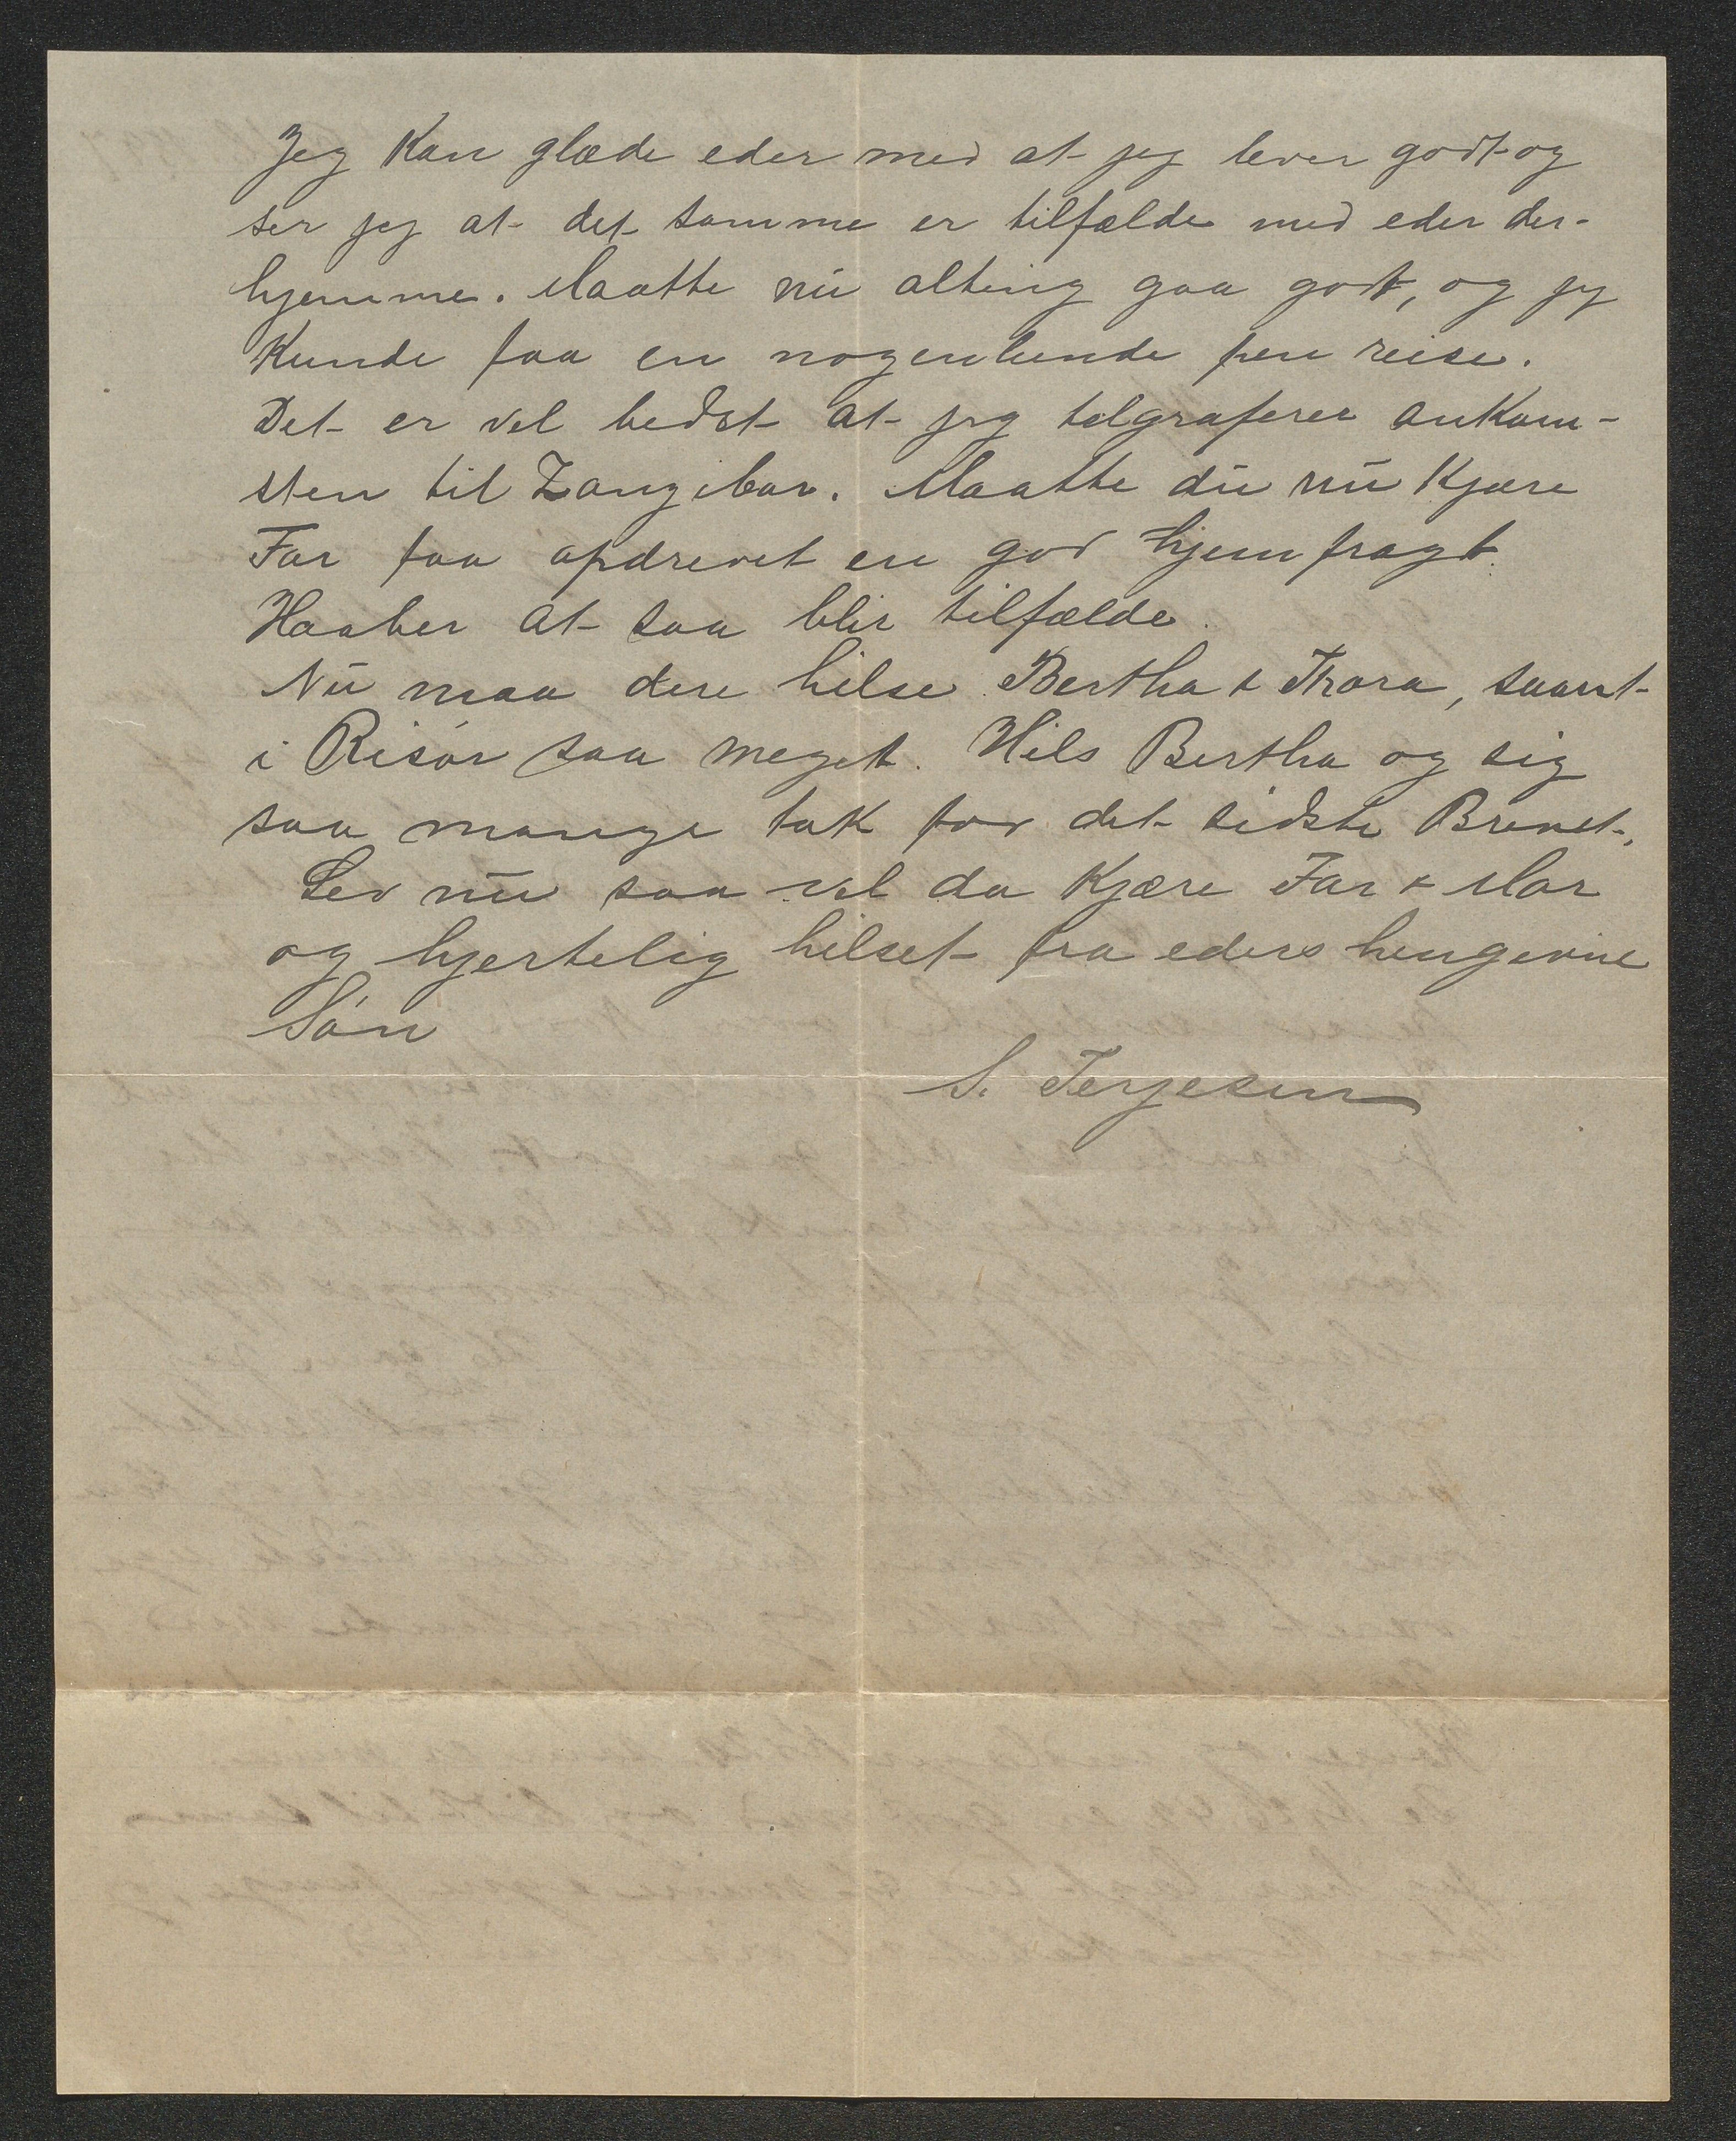 Jeg Kan glæde eder med at jeg lever godt og
ser jeg at det samme er tilfælde med eder der-
hjemme. Maatte nu alting gaa godt, og jeg
Kunde faa en nogenlunde pen reise.
Det er vel bedst at jeg telgraferer ankom-
sten til Zanzibar. Maatte du nu Kjære
Far faa opdrevet en god hjemfragt.
Haaber at saa blir tilfælde.
Nu maa dere hilse Bertha & Thora, samt
i Risør saa meget. Hils Bertha og sig
saa mange tak for det sidste Brevet.
Lev nu saa vel da Kjære Far & Mor
og hjertelig hilset fra eders hengivne
Søn
S. Terjesen